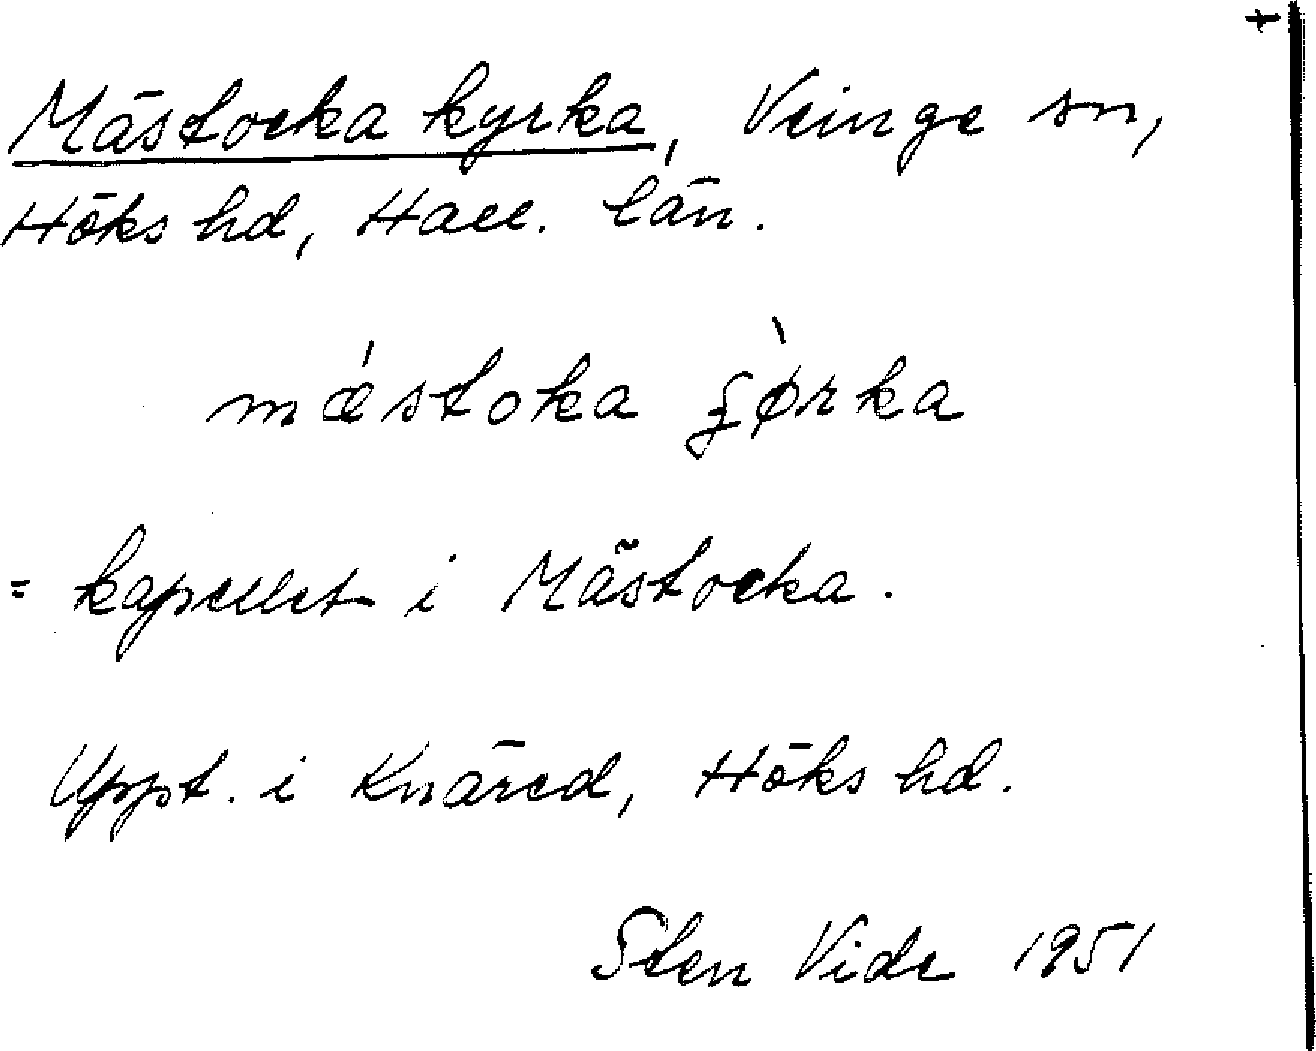 Mästocka kyrka, Veinge sn,
Höks hd, Hall. län.
mǽstoka ʂø̀rka
= kapellet i Mästocka.
Uppt. i Knäred, Höks hd.
Sten Vide 1951